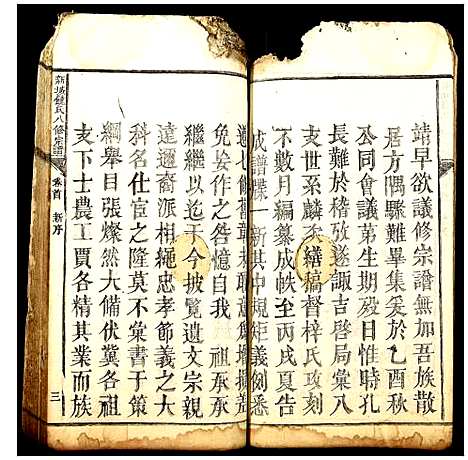 靖早欲議修宗譜無如吾族散
居方隅驟難畢集爰於乙酉秋
仝同會議第生期歿日惟時孔
長難於稽攷遂諏吉啓局彙八
支世系麟次繕稿督梓氏攻刻
不數月編纂成帙至戌夏告
成譜牒一新其中規矩義例悉
遵
免妄作之咎憶自我 祖承承
繼繼以迄于今披覽遺文宗親
遠邇裔派相繩忠孝節義之大
科名仕宦之隆莫不彙書于策
綱舉目張燦然大備伏冀各祖
支下士農工賈各精其業而族
新城鍾氏八修宗譜
卷首 新序 三